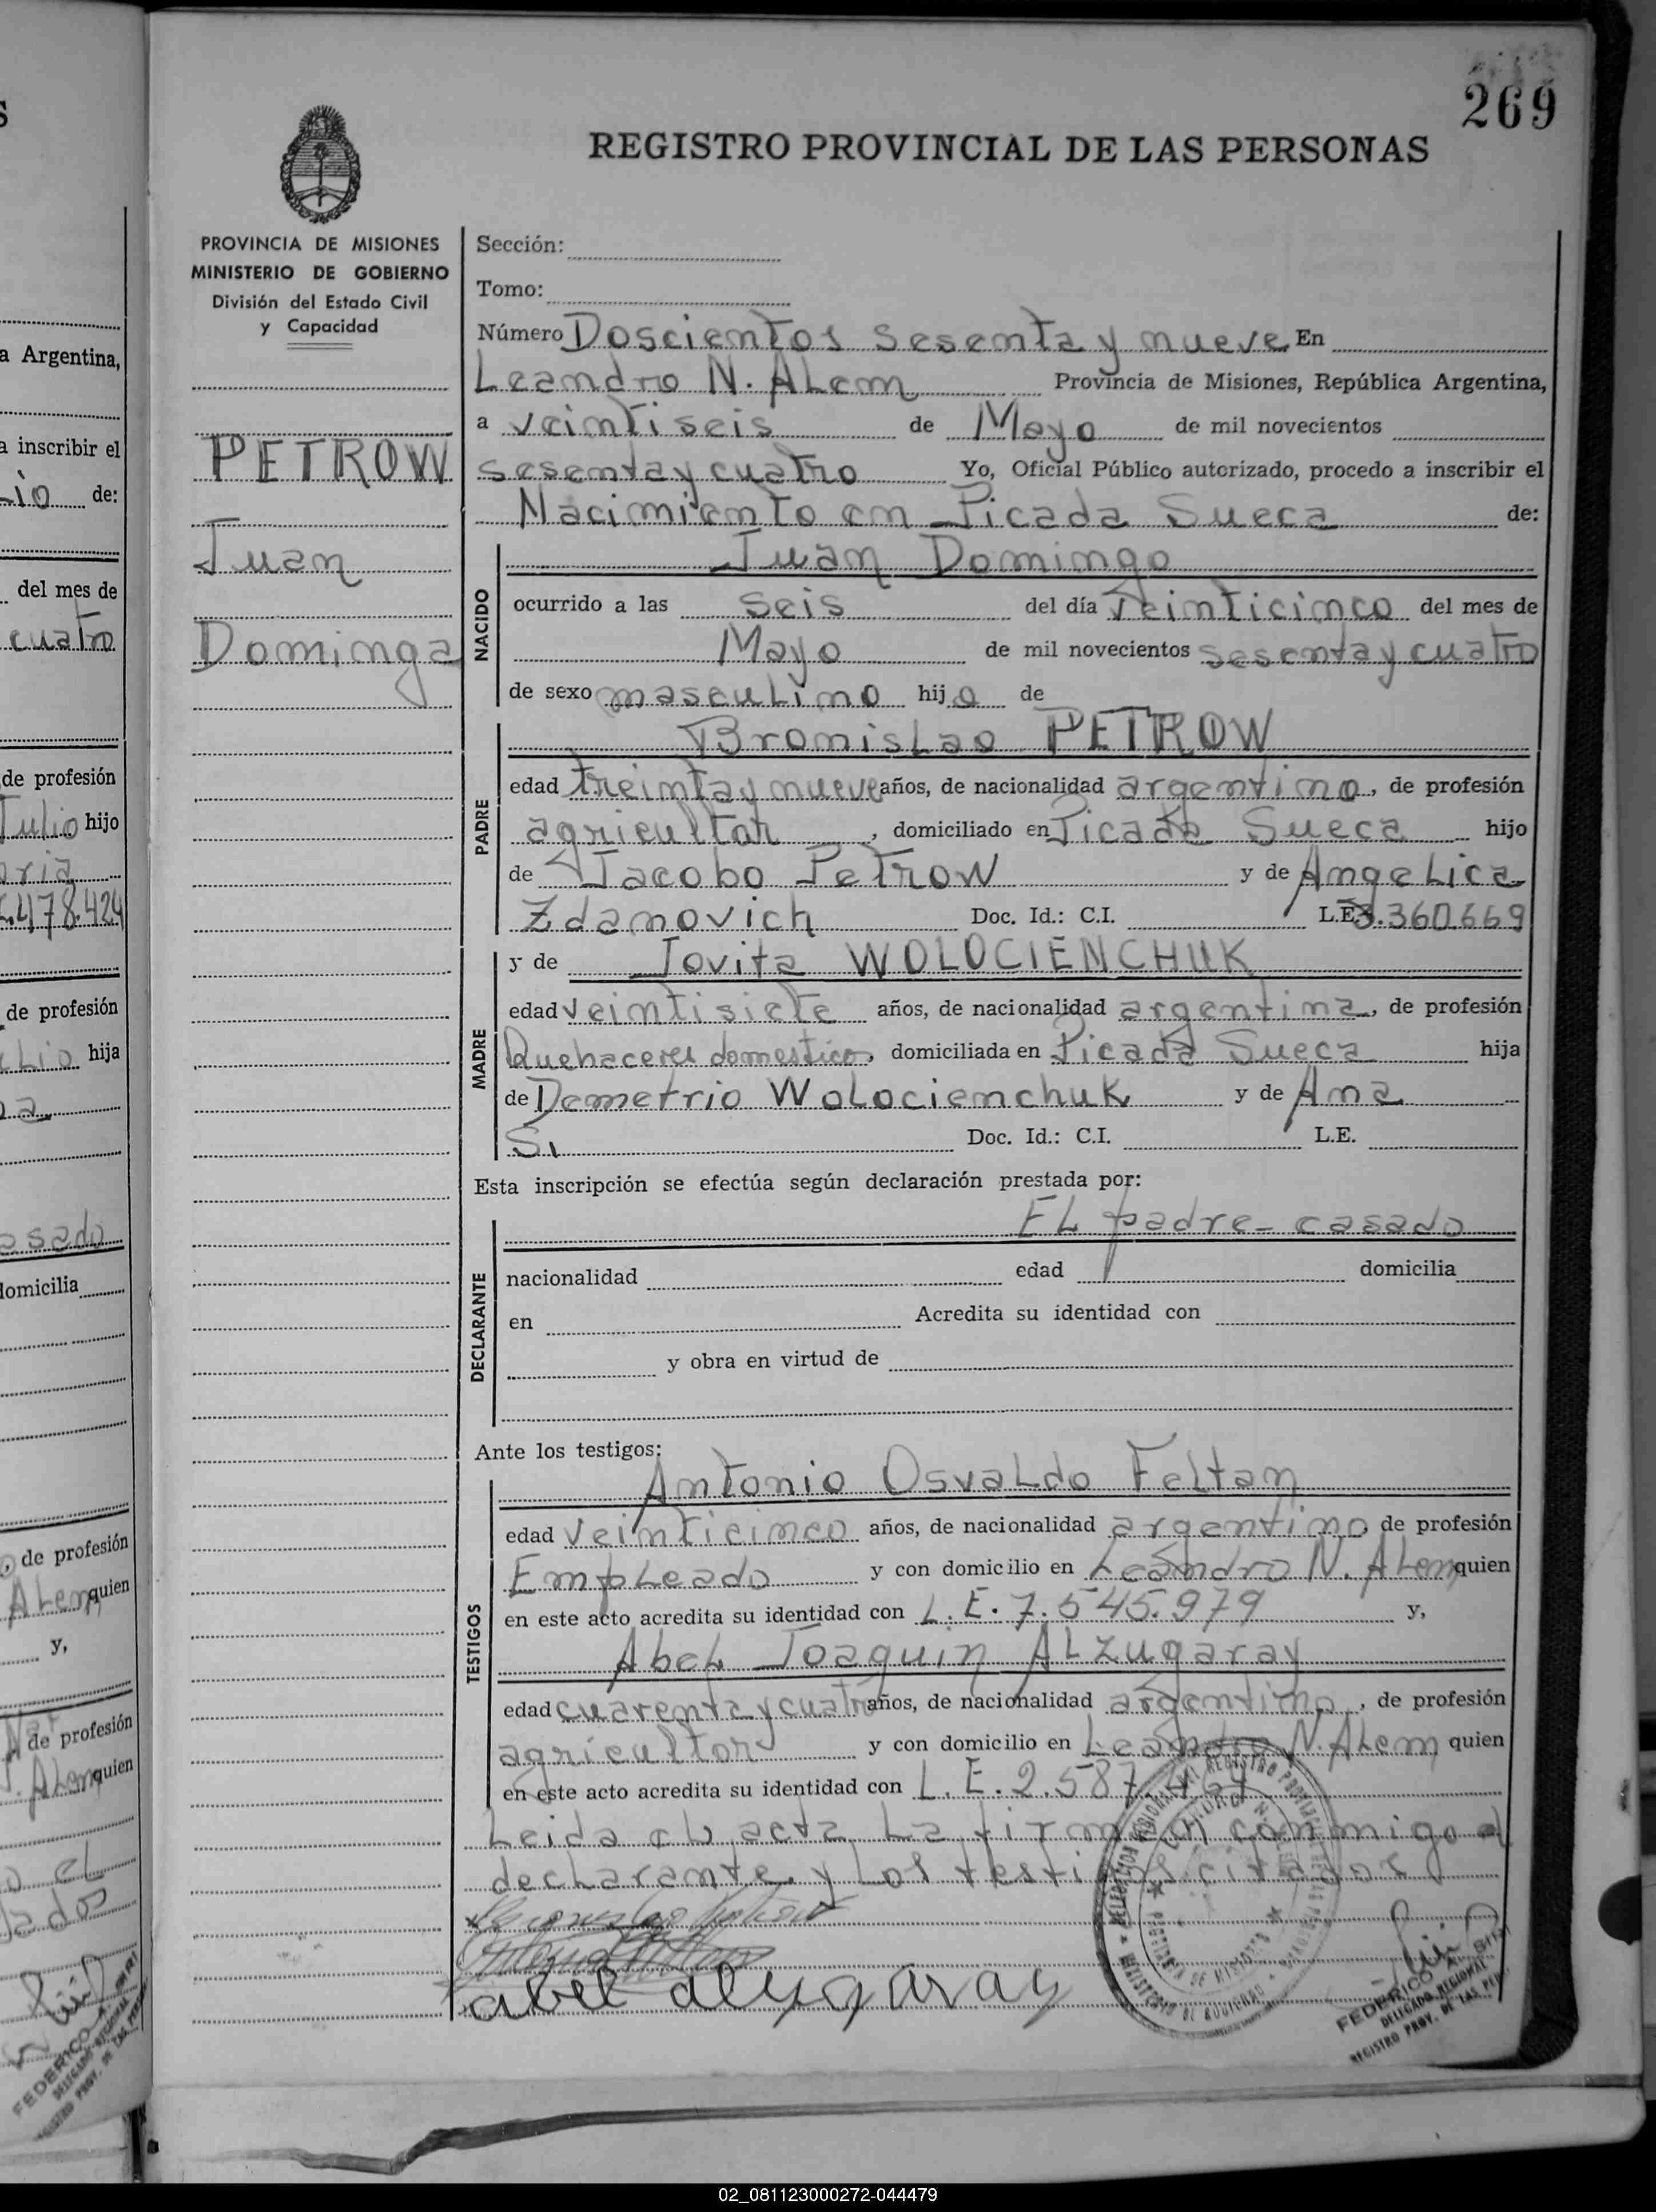 269
REGISTRO PROVINCIAL DE LAS PERSONAS
PROVINCIA DE MISIONES
MINISTERIO DE GOBIERNO
División del Estado Civil
y Capacidad
PETROW
Juan
Domingo
Sección:
Tomo:
Número Doscientos sesenta y nueve En
Leandro N. Alem Provincia de Misiones, República Argentina,
a veintiseis de Mayo de mil novecientos
sesenta y cuatro Yo, Oficial Público autorizado, procedo a inscribir el
Nacimiento en Picada Sueca de:
NACIDO
Juan Domingo
ocurrido a las seis del día veinticinco del mes de
Mayo de mil novecientos sesenta y cuatro
de sexo masculino hijo de
PADRE
Bronislao PETROW
edad treinta y nueve años, de nacionalidad argentino, de profesión
agricultor, domiciliado en Picada Sueca hijo
de Jacobo Petrow y de Angelica
Zdanovich Doc. Id.: C.I. L.E. 3.360.669
MADRE
y de Jovita WOLOCIENCHUK
edad veintisiete años, de nacionalidad argentina, de profesión
Quehaceres domesticos, domiciliada en Picada Sueca hija
de Demetrio Wolocienchuk y de Ana
Doc. Id.: C.I. L.E.
Esta inscripción se efectúa según declaración prestada por:
DECLARANTE
El padre - casado
nacionalidad edad domicilia
en Acredita su identidad con
y obra en virtud de
Ante los testigos:
TESTIGOS
Antonio Osvaldo Feltan
edad veinticinco años, de nacionalidad argentino de profesión
Empleado y con domicilio en Leandro N. Alem quien
en este acto acredita su identidad con L.E. 7.545.979 y,
Abel Joaquin Alzugaray
edad cuarenta y cuatro años, de nacionalidad argentino, de profesión
agricultor y con domicilio en Leandro N. Alem quien
en este acto acredita su identidad con L.E. 2.587.
Leida el acta La firman conmigo el
declarante y los testigos citados
abel alzugaray
FEDERICO
DELEGADO REGIONAL
REGISTRO PROV. DE LAS PER.
a Argentina,
a inscribir el
de:
del mes de
cuatro
de profesión
Julio hijo
478.424
de profesión
hija
casado
domicilia
de profesión
Alem quien
y,
de profesión
Alem quien
FEDERICO
DELEGADO REGIONAL
02_081123000272-044479